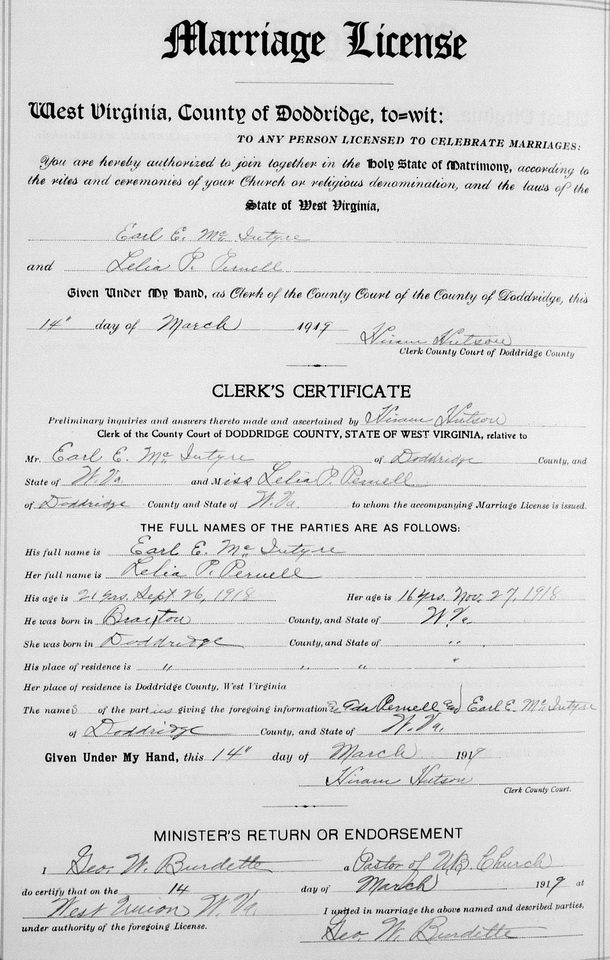 Marriage License
West Virginia, County of Doddridge, to=wit:
TO ANY PERSON LICENSED TO CELEBRATE MARRIAGES:
You are hereby authorized to join together in the Holy State of Matrimony, according to
the rites and ceremonies of your Church or religious denomination, and the laws of the
State of West Virginia,
Earl E. Mc Intyre
and Lelia P. Pernell
Given Under My Hand, as Clerk of the County Court of the County of Doddridge, this
14" day of March 1919 Hiram Hutson
Clerk County Court of Doddridge County
CLERK'S CERTIFICATE
Preliminary inquiries and answers thereto made and ascertained by Hiram Hutson
Clerk of the County Court of DODDRIDGE COUNTY, STATE OF WEST VIRGINIA, relative to
Mr. Earl E. Mc Intyre of Doddridge County, and
State of W.Va. and Miss Lelia P. Pernell
of Doddridge County and State of W.Va. to whom the accompanying Marriage License is issued.
THE FULL NAMES OF THE PARTIES ARE AS FOLLOWS:
His full name is Earl E. Mc Intyre
Her full name is Lelia P. Pernell
His age is 21 yrs. Sept. 26, 1918 Her age is 16 yrs. Nov. 27, 1918
He was born in Braxton County, and State of W.Va
She was born in Doddridge County, and State of " "
His place of residence is " " " "
Her place of residence is Doddridge County, West Virginia
The names of the parties giving the foregoing information Ada Pernell Earl E. Mc Intyre
of Doddridge County, and State of W.Va.
Given Under My Hand, this 14" day of March 1919
Hiram Hutson
Clerk County Court.
MINISTER'S RETURN OR ENDORSEMENT
I Geo. W. Burdette a Pastor of U.B. Church
do certify that on the 14 day of March 1919 at
West Union W.Va. I united in marriage the above named and described parties,
under authority of the foregoing License. Geo. W. Burdette